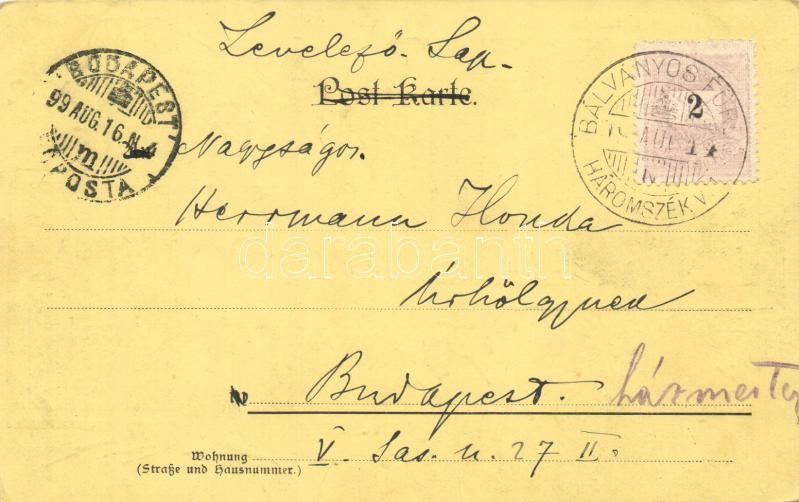 Levelező-Lap
Post-Karte.
BUDAPEST
99 AUG. 16. N. 4
m
POSTA
BÁLVÁNYOS FÜR
AUG 14
N
HÁROMSZÉK V.
2
Nagyságos
Herrmann Honda
darabanth
Úrhölgynek
Budapest. házmester
V. Sas. u. 27 II.
Wohnung
(Straße und Hausnummer.)